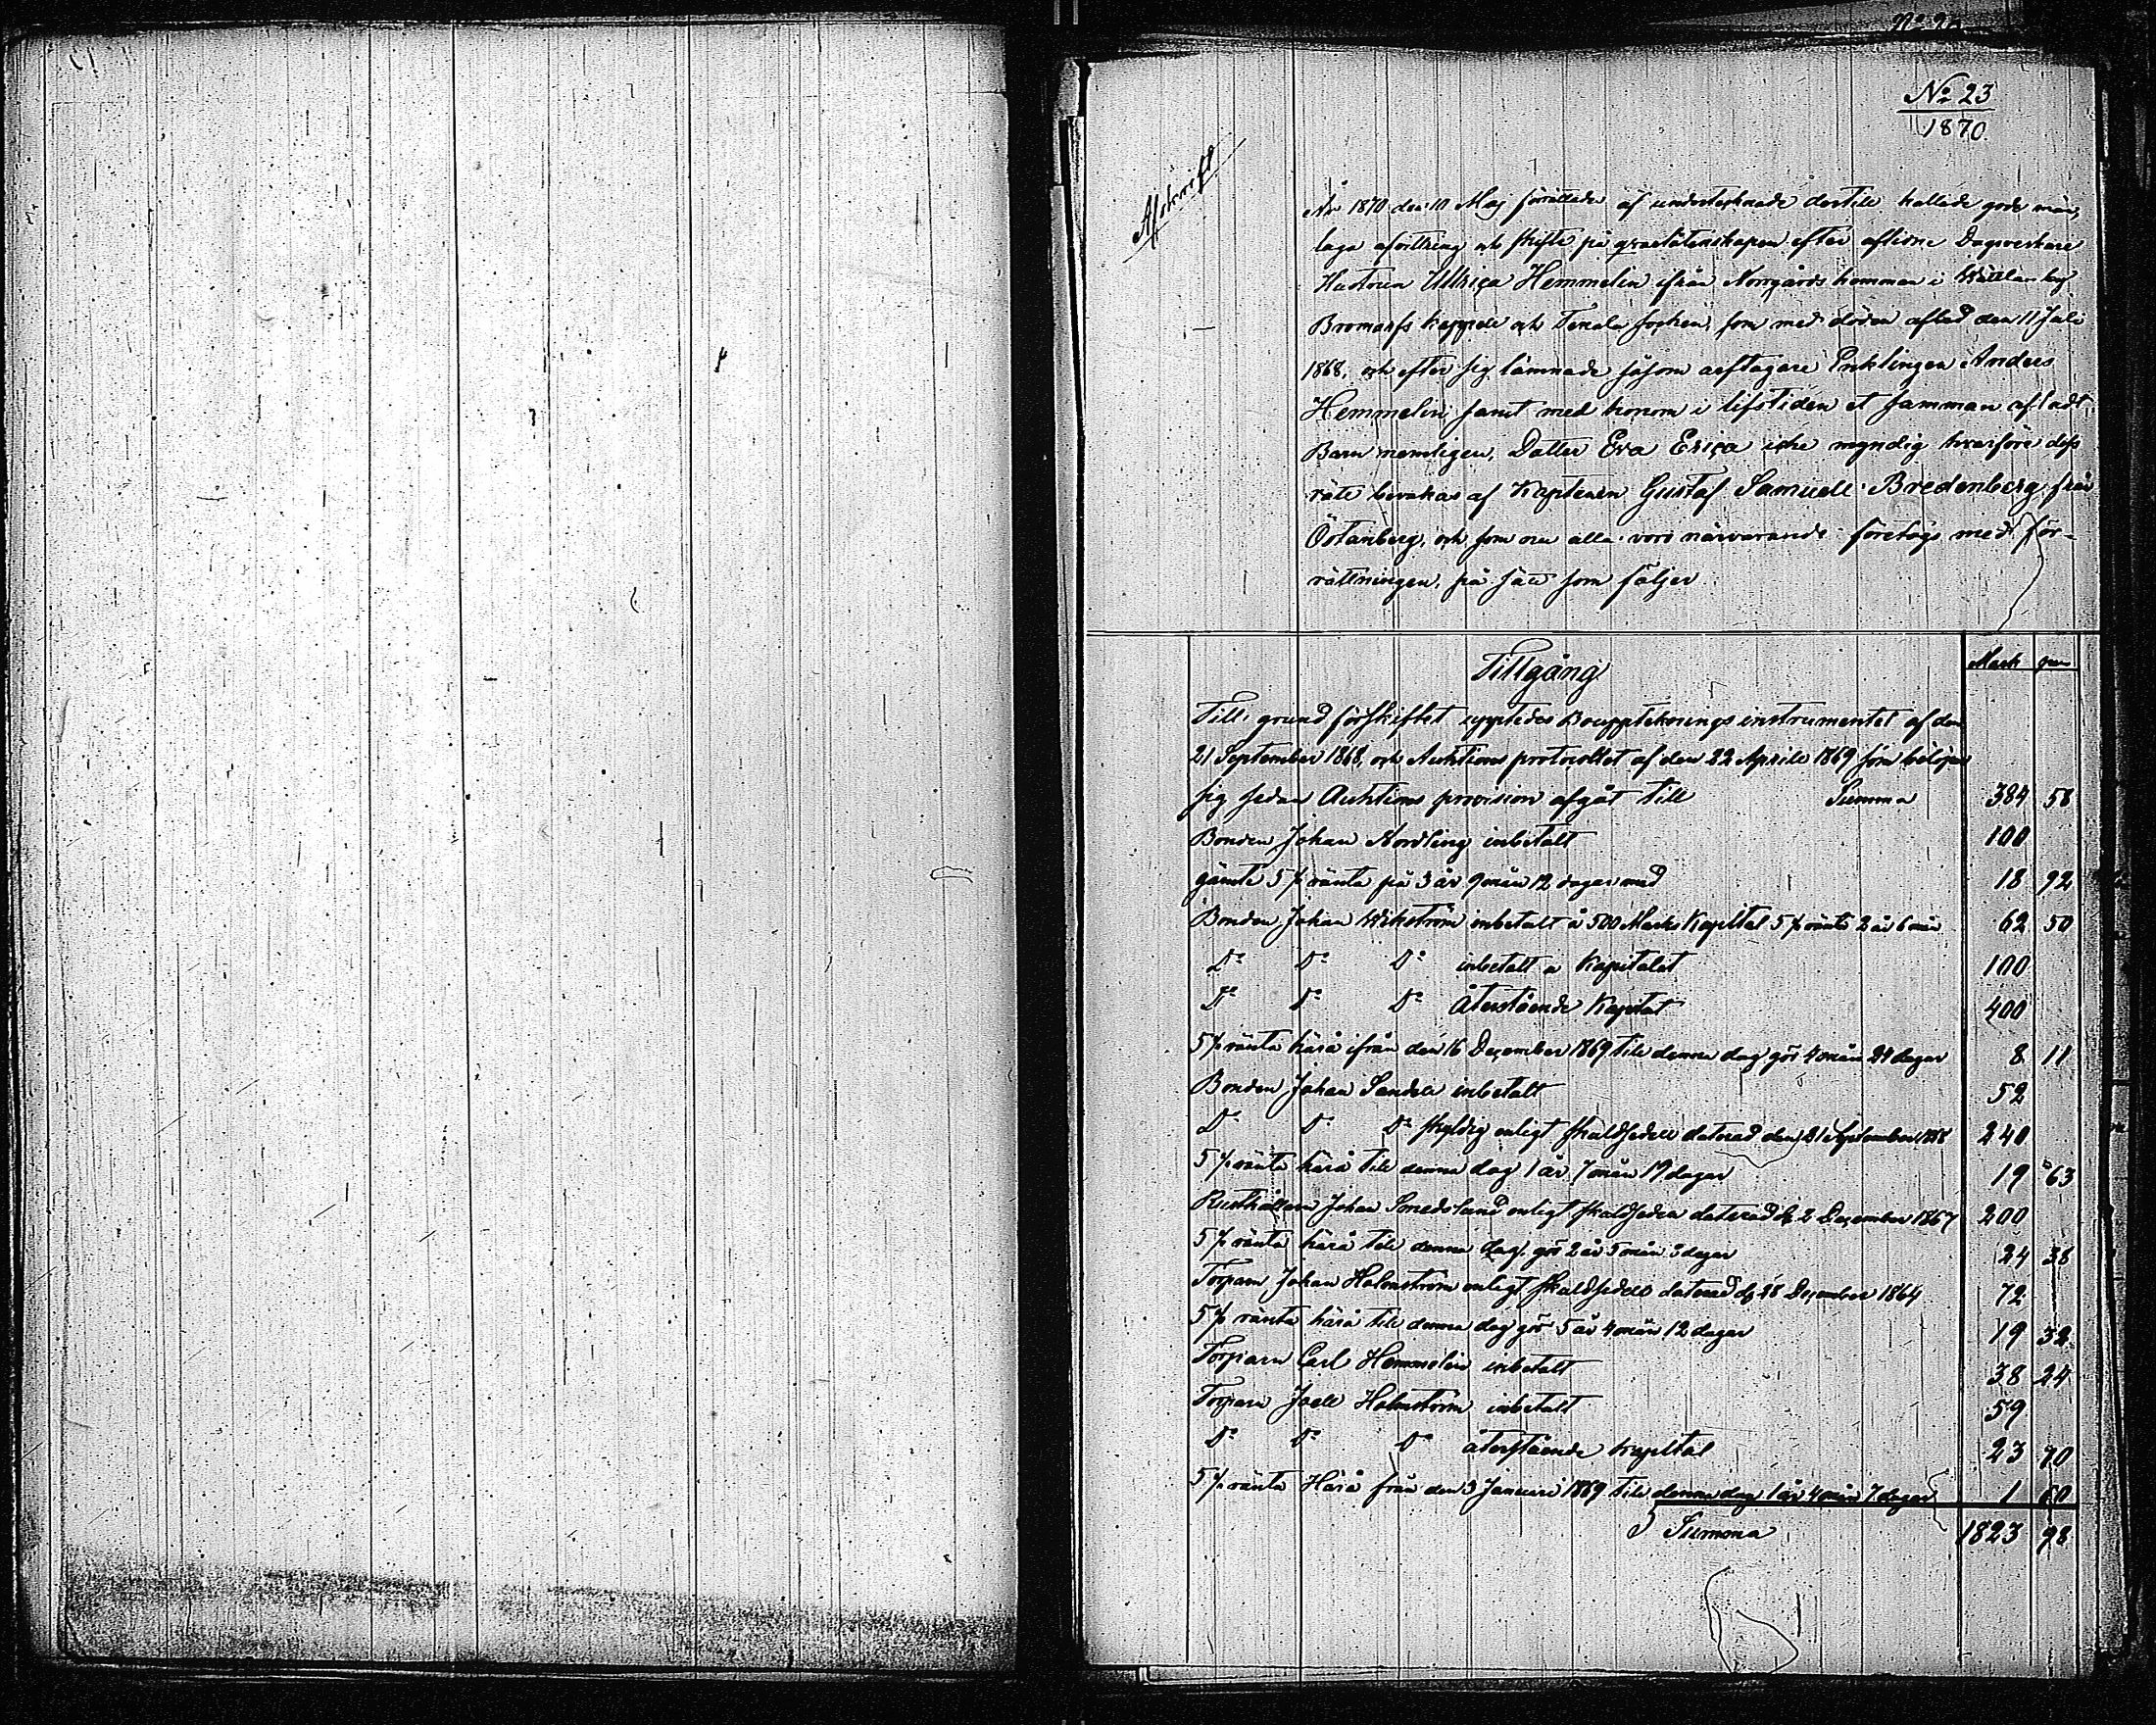 No 23
1870
Afskrift
År 1870 den 10 Maj förrättades af undertecknade dertill kallade gode män,
laga afvittring och skifte på qvarlåtenskapen efter aflidne Dagsverkare
Hustrun Ullriça Hemmelin ifrån Norrgårds hemman i
Bromarfs kappell och Tenala socken, som med döden afled den 11 Juli
1868, och efter sig lämnade såsom arftagare Enklingen Anders
Hemmelin samt med honom i lifstiden et samman afladt
Barn nemligen, Dotter Eva Eriça icke myndig hvarföre dess
rätt bevakas af Kaptenen Gustaf Samuell Bredenberg från
Östanberg, och som nu alla voro närvarande företogs med för-
rättningen, på sätt som följer
Tillgång
Mark pni
Till grund för skiftet upptedes Bouppteknings instrumentet af den
21 September 1868, och Auktions protocollet af den 22 Aprill 1869 som belöper
sig sedan Auktions provision afgåt till Summa 384 58
Bonden Johan Nordling inbetalt 100
jämte 5 % ränta på 3 år 9 mån 12 dagar med 18 92
Bonden Johan Wikström inbetalt å 500 Marks Kapital 5 % ränta 2 år 6 mån 62 50
Do Do Do inbetalt a Kapitalet 100
Do Do Do Återstående Kapital 400
5 % ränta härå ifrån den 16 Deçember 1869 till denna dag gör 4 mån 24 dagar 8 11
Bonden Johan Sandell inbetalt 52
Do Do Do skyldig enligt skuldsedell daterad den 21 September 1868 240
5 % ränta härå till denna dag 1 år 7 mån 19 dagar 19 63
Rusthållarn Johan Smedslund enligt skuldsedeln daterad d. 2 Deçember 1867 200
5 % ränta härå till denna dag gör 2 år 5 mån 3 dagar 24 38
Torparn Johan Holmström enligt skuldsedell daterad d. 28 Deçember 1864 72
5 % ränta härå till denna dag gör 5 år 4 mån 12 dagar 19 32
Torparn Carl Hemmelin inbetalt 38 24
Torparn Joell Holmström inbetalt 59
Do Do Do återstående kapital 23 70
5 % ränta Härå från den 3 Januari 1869 till denna dag 1 år 4 mån 7 dagar 1 60
Summa 1823 98